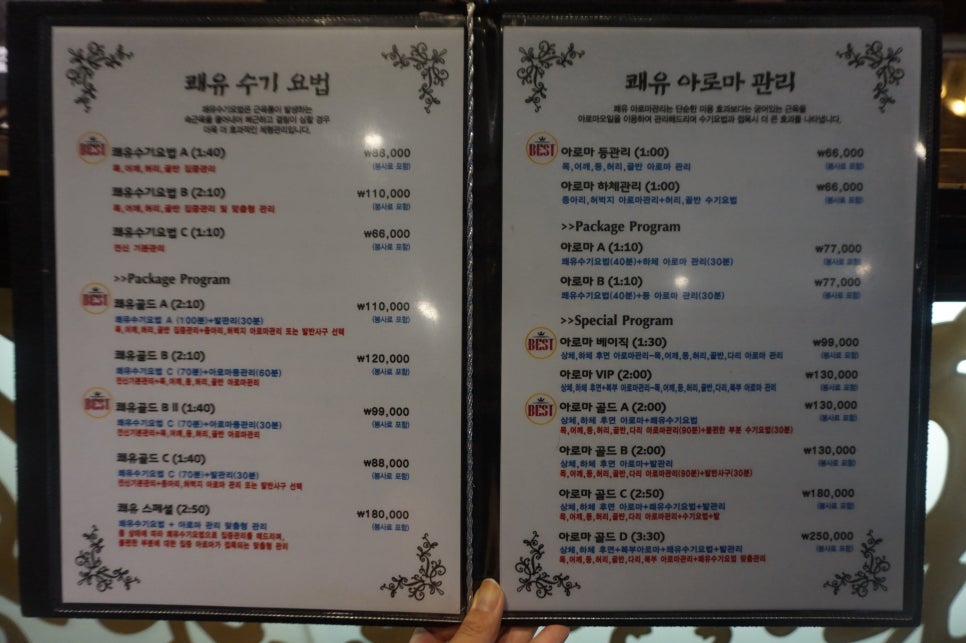 쾌유 수기 요법
쾌유수기요법은 근육통이 발생하는
속근육을 풀어내어 뻐근하고 결림이 심할 경우
더욱 더 효과적인 체형관리입니다.
BEST
쾌유수기요법 A (1:40) ₩88,000
목,어깨,허리,골반 집중관리 (봉사료 포함)
쾌유수기요법 B (2:10) ₩110,000
목,어깨,허리,골반 집중관리 및 맞춤형 관리 (봉사료 포함)
쾌유수기요법 C (1:10) ₩66,000
전신 기본관리 (봉사료 포함)
>>Package Program
BEST
쾌유골드 A (2:10) ₩110,000
쾌유수기요법 A (100분)+발관리(30분) (봉사료 포함)
목,어깨,허리,골반 집중관리+종아리,허벅지 아로마관리 또는 발반사구 선택
쾌유골드 B (2:10) ₩120,000
쾌유수기요법 C (70분)+아로마등관리(60분) (봉사료 포함)
전신기본관리+목,어깨,등,허리,골반 아로마관리
BEST
쾌유골드 BⅡ (1:40) ₩99,000
쾌유수기요법 C (70분)+아로마등관리(30분) (봉사료 포함)
전신기본관리+목,어깨,등,허리,골반 아로마관리
쾌유골드 C (1:40) ₩88,000
쾌유수기요법 C (70분)+발관리(30분) (봉사료 포함)
전신기본관리+종아리,허벅지 아로마 관리 또는 발반사구 선택
쾌유 스페셜 (2:50) ₩180,000
쾌유수기요법 + 아로마 관리 맞춤형 관리 (봉사료 포함)
몸 상태에 따라 쾌유수기요법으로 집중관리를 해드리며,
불편한 부분에 대한 집중 아로마가 접목되는 맞춤형 관리
쾌유 아로마 관리
쾌유 아로마관리는 단순한 미용 효과보다는 굳어있는 근육을
아로마오일을 이용하여 관리해드리며 수기요법과 접목시 더 큰 효과를 나타냅니다.
BEST
아로마 등관리 (1:00) ₩66,000
목,어깨,등,허리,골반 아로마 관리 (봉사료 포함)
아로마 하체관리 (1:00) ₩66,000
종아리,허벅지 아로마관리+허리,골반 수기요법 (봉사료 포함)
>>Package Program
아로마 A (1:10) ₩77,000
쾌유수기요법(40분)+하체 아로마 관리(30분) (봉사료 포함)
아로마 B (1:10) ₩77,000
쾌유수기요법(40분)+등 아로마 관리(30분) (봉사료 포함)
>>Special Program
BEST
아로마 베이직 (1:30) ₩99,000
상체,하체 후면 아로마관리-목,어깨,등,허리,골반,다리 아로마 관리 (봉사료 포함)
아로마 VIP (2:00) ₩130,000
상체,하체 후면+복부 아로마관리-목,어깨,등,허리,골반,다리,복부 아로마 관리 (봉사료 포함)
BEST
아로마 골드 A (2:00) ₩130,000
상체,하체 후면 아로마+쾌유수기요법 (봉사료 포함)
목,어깨,등,허리,골반,다리 아로마관리(90분)+불편한 부분 수기요법(30분)
아로마 골드 B (2:00) ₩130,000
상체,하체 후면 아로마+발관리 (봉사료 포함)
목,어깨,등,허리,골반,다리 아로마관리(90분)+발반사구(30분)
아로마 골드 C (2:50) ₩180,000
상체,하체 후면 아로마+쾌유수기요법+발관리 (봉사료 포함)
목,어깨,등,허리,골반,다리 아로마관리+수기요법+발
아로마 골드 D (3:30) ₩250,000
상체,하체 후면+복부아로마+쾌유수기요법+발관리 (봉사료 포함)
목,어깨,등,허리,골반,다리,복부 아로마관리+쾌유수기요법 맞춤관리